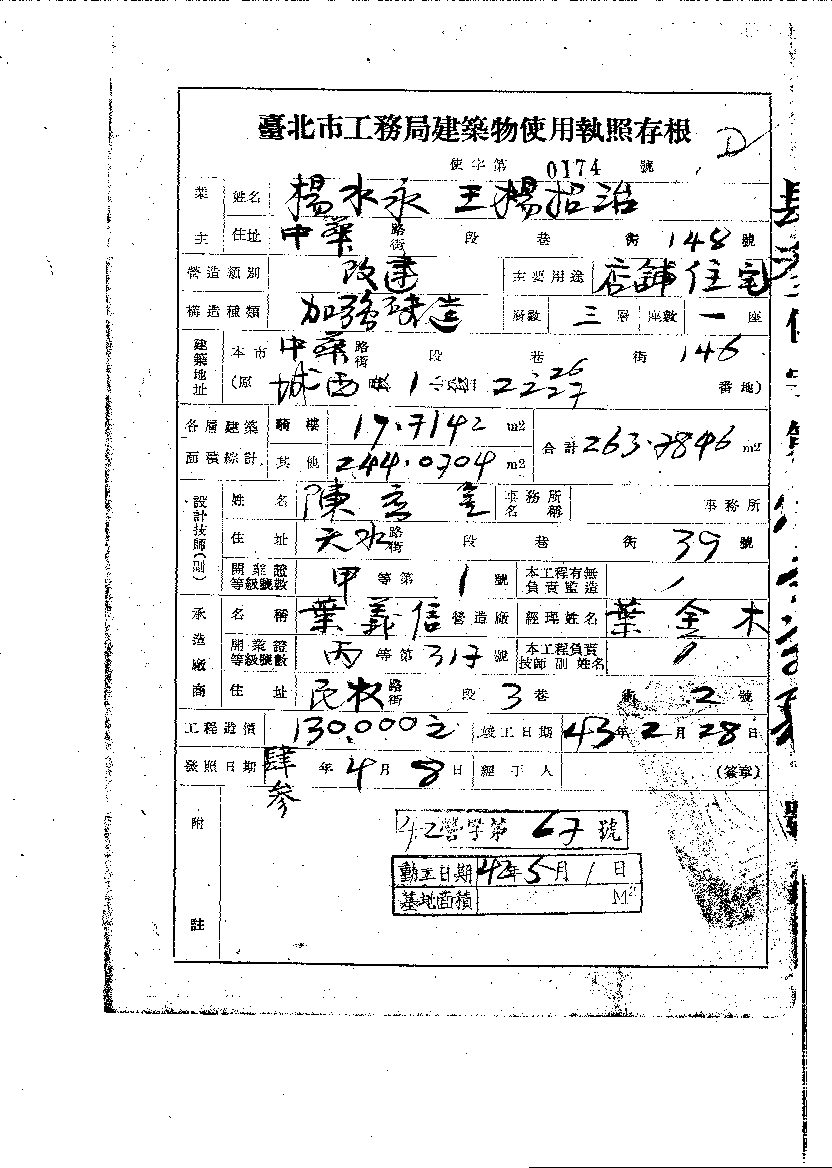 臺北市工務局建築物使用執照存根
D
使字第 0174 號
業主 姓名 楊水永 王楊招治
住址 中華 路街 段 巷 街 148 號
營造類別 改建 主要用途 店舖住宅
構造種類 加強磚造 層數 三層 座數 一座
建築地址 本市 中華 路街 段 巷 街 146
(原 城西 1 22 26 27 番地)
各層建築面積綜計 騎樓 19.7142 m2 合計 263.7846 m2
其他 244.0704 m2
設計技師(副) 姓名 陳 金 事務所名稱 事務所
住址 天水 路街 段 巷 街 39 號
開業證等級號數 甲 等第 1 號 本工程有無負責監造 /
承造廠商 名稱 葉義信 營造廠 經理姓名 葉金木
開業證等級號數 丙 等第 317 號 本工程負責技師副姓名 /
住址 民權 路街 段 3 巷 街 2 號
工程造價 130.000元 竣工日期 43年2月28日
發照日期 肆參 年 4 月 8 日 經手人 (簽章)
附註
42營字第 67 號
動工日期 42年5月1日
基地面積 M2